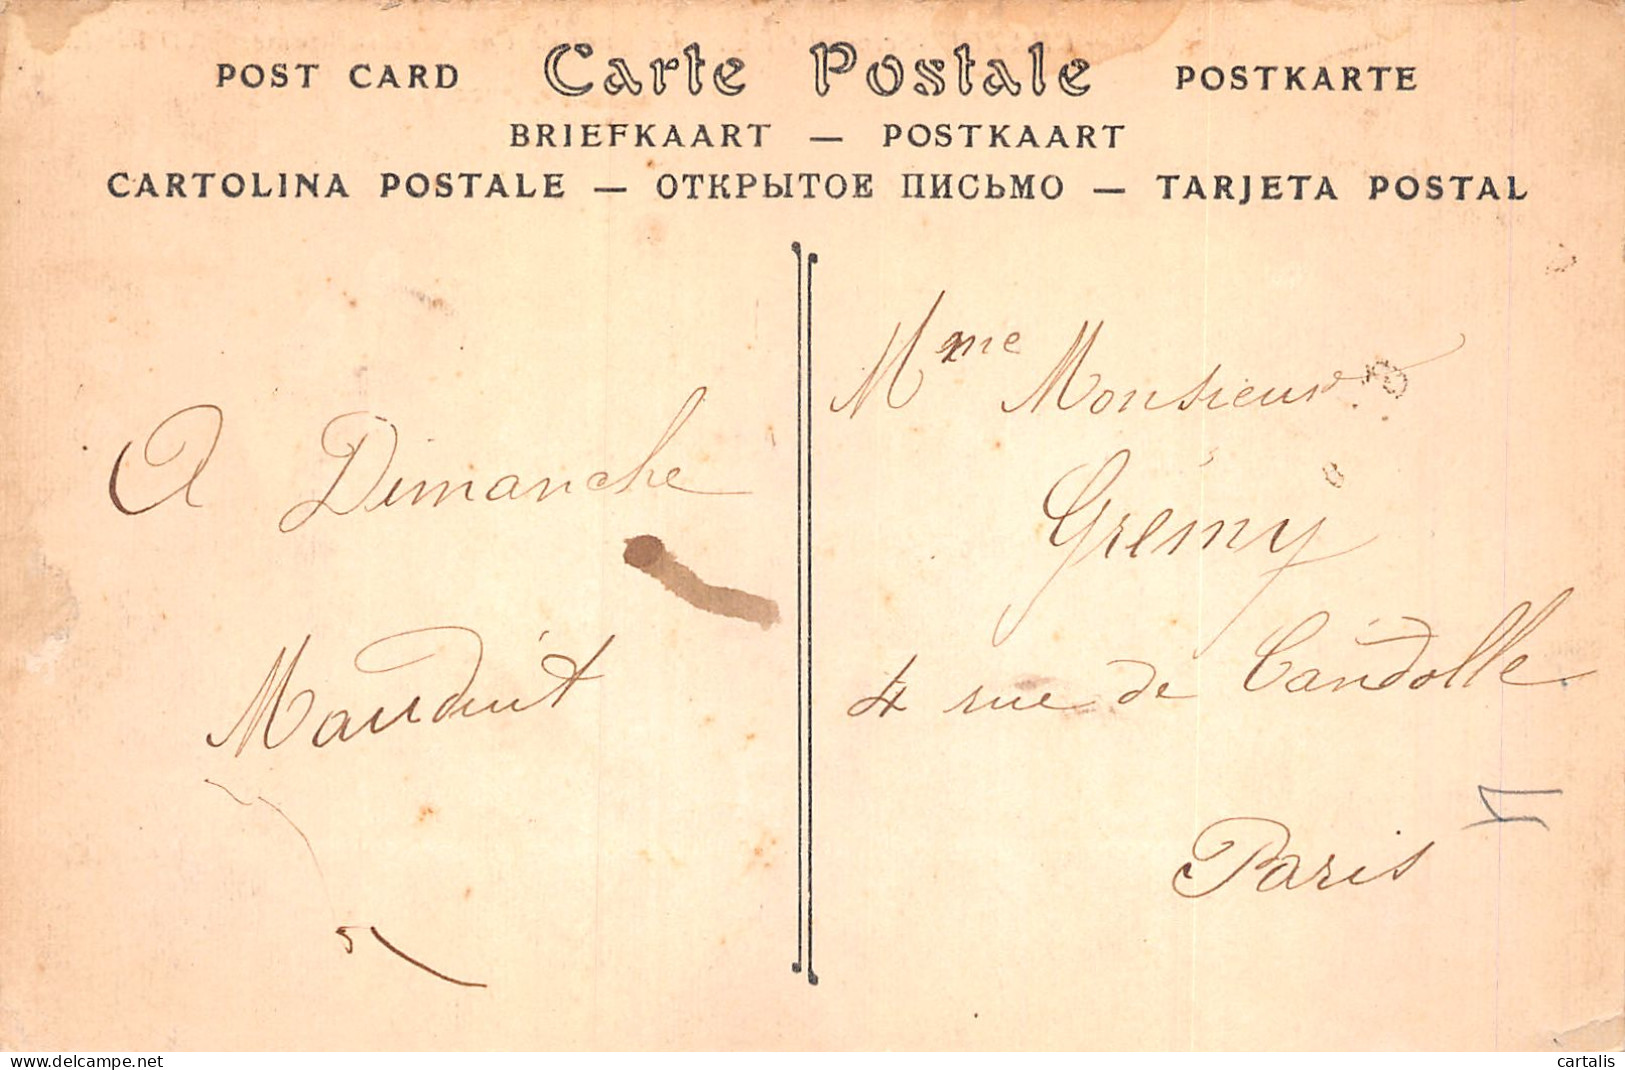 POST CARD Carte Postale POSTKARTE
BRIEFKAART — POSTKAART
CARTOLINA POSTALE — ОТКРЫТОЕ ПИСЬМО — TARJETA POSTAL
A Dimanche
Mauduit
Mme Monsieur
Grémy
4 rue de Candolle
Paris
cartalis